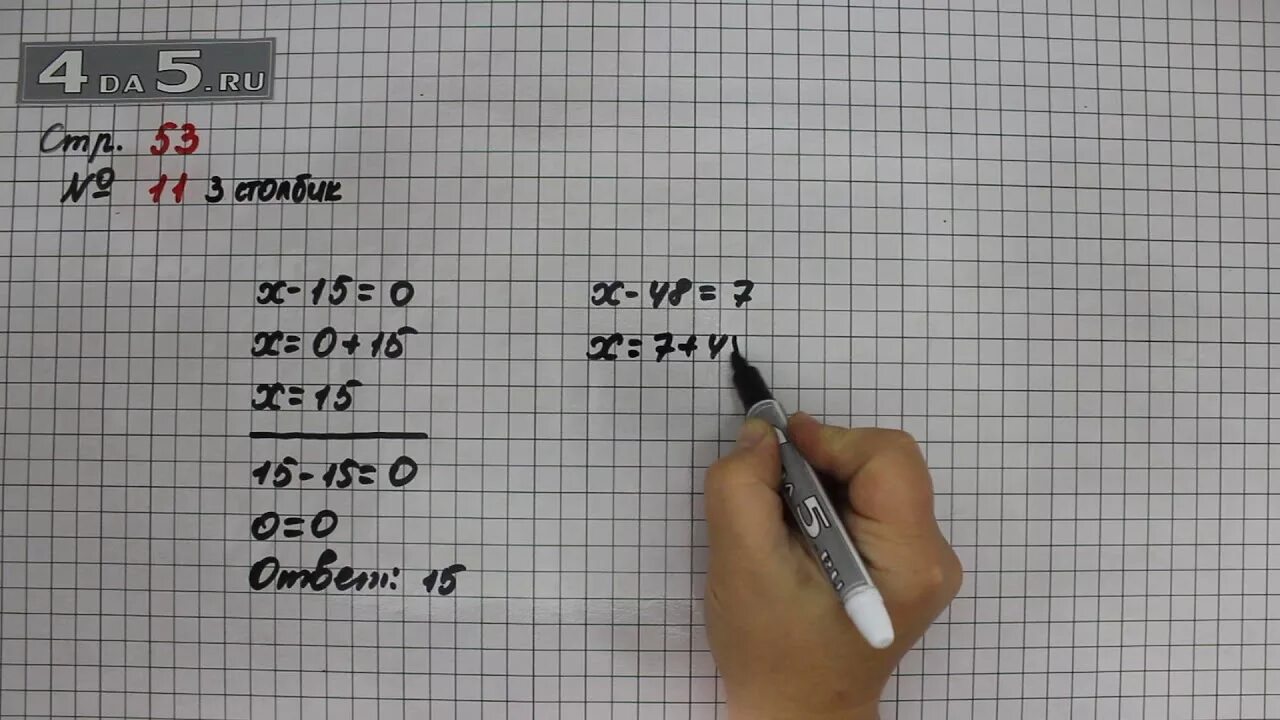 4DA5.RU
Стр. 53
№ 11 3 столбик
x-15=0
x=0+15
x=15
15-15=0
0=0
Ответ: 15
x-48=7
x=7+4
5.RU